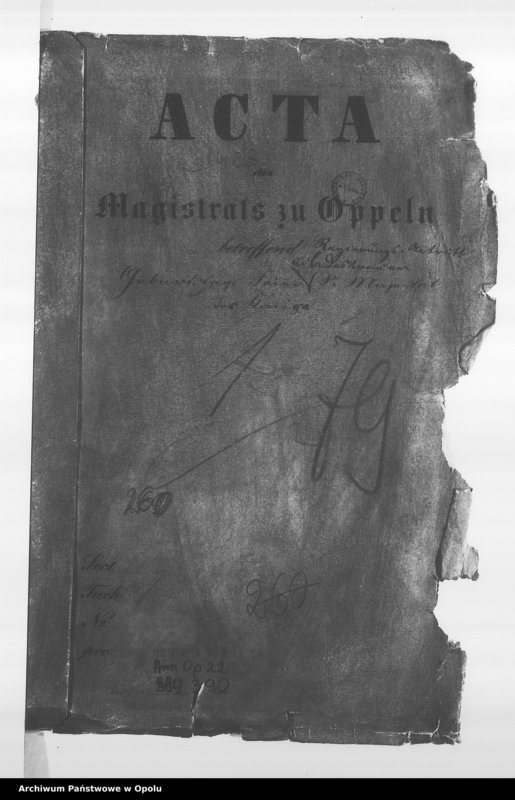 ACTA
des
Magistrats zu Oppeln
betreffend Regierungs-Antritt
Geburtstags Feier Sr. Majestät
des Königs
1
79
260
Sect.
Fach
No
pro
260
Am Op 22
389 390
Archiwum Państwowe w Opolu